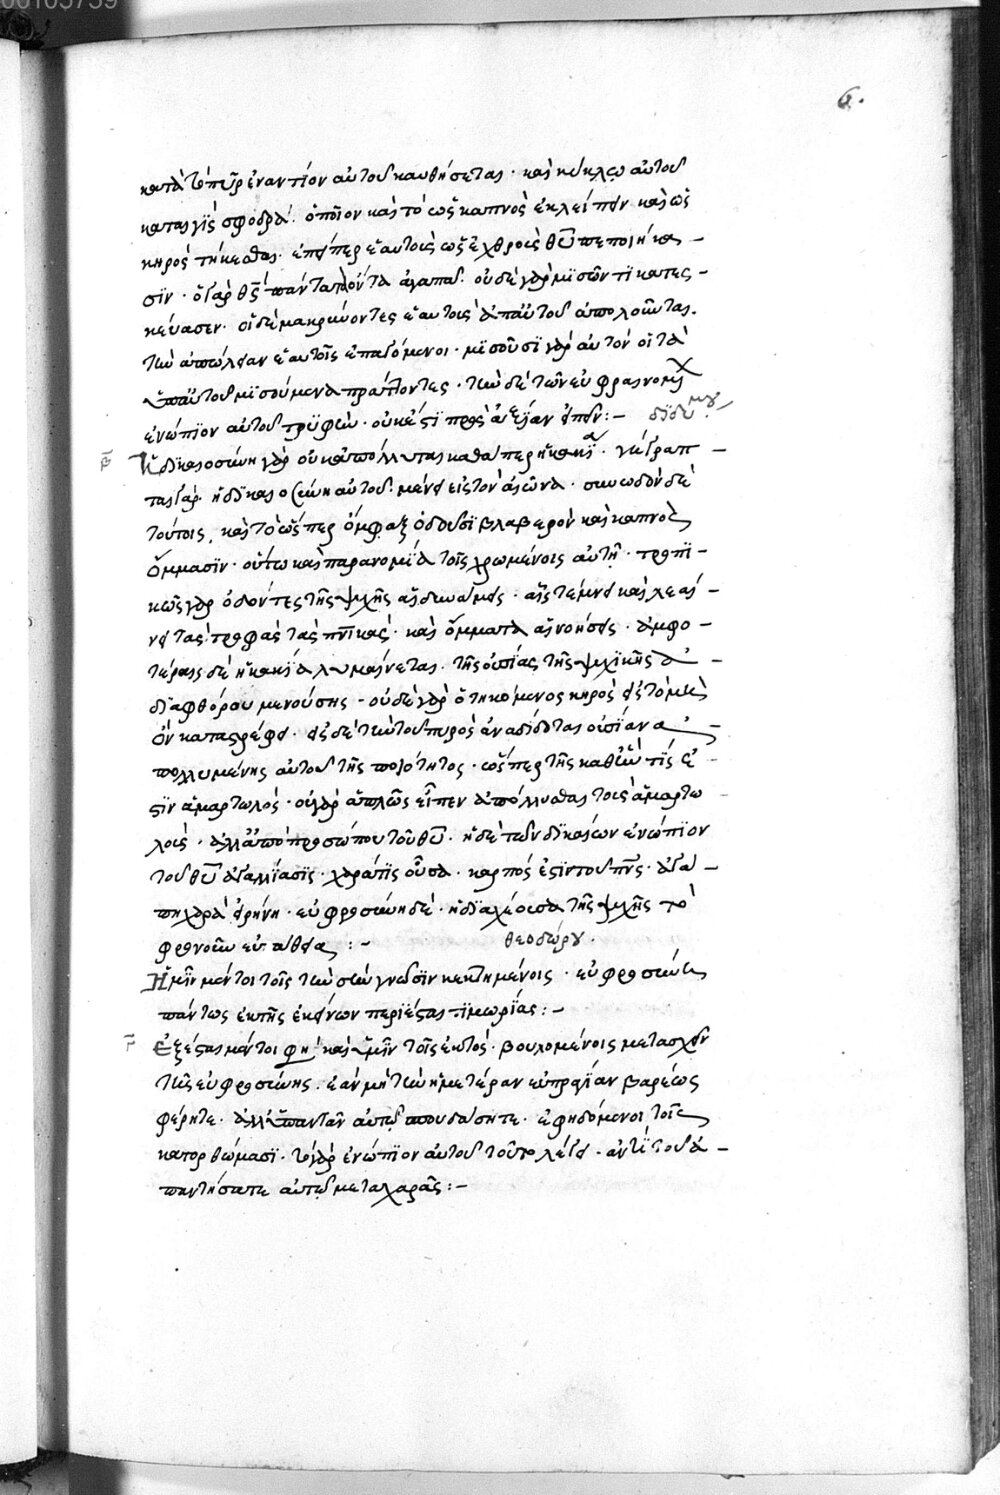 6.
κατὰ τὸ πῦρ ἐναντίον αὐτοῦ καυθήσεται · καὶ κύκλῳ αὐτοῦ
καταιγὶς σφοδρά · ὁποῖον καὶ τὸ ὡς καπνὸς ἐκλείπειν καὶ ὡς
κηρὸς τήκεσθαι · ἐπείπερ ἑαυτοὺς ὡς ἐχθροὺς θυ πεποιήκα –
σϊν · ὁ γὰρ θς πάντα τὰ ὄντα ἀγαπᾶ · οὐδὲ γὰρ μϊσῶν τϊ κατεσ –
κεύασεν · οἱ δὲ μακρύνοντες ἑαυτοὺς ἀπ αὐτοῦ ἀπολοῦνται ·
τὴν ἀπώλειαν ἑαυτοῖς ἐπαγόμενοι · μϊσοῦσϊ γὰρ αὐτὸν οἱ τὰ
ὑπ αὐτοῦ μϊσούμενα πράττοντες · τὴν δὲ τῶν εὐφραινομέ
ἐνώπϊον αὐτοῦ τρϋφὴν · οὐκ ἔστϊ πρὸς ἀξίαν εἰπεῖν : – διδύμου
β Ἡ δϊκαιοσύνη γὰρ οὐκ ἀπόλλυται καθάπερ ἡ κακΐα · γέγραπ –
ται γάρ · ἡ δϊκαιοσύνη αὐτοῦ μένει εἰς τὸν αἰῶνα · συνωδὰ δὲ
τούτοις, καὶ τὸ ὥσπερ ὄμφαξ ὀδοῦσϊ βλαβερὸν καὶ καπνὸς
ὄμμασϊν · οὕτω καὶ παρανομΐα τοῖς χρωμένοις αὐτῇ · τροπϊ –
κῶς γὰρ ὀδόντες τῆς ψυχῆς αἱ δυνάμεις · αἷς τέμνει καὶ λεαί –
νει τὰς τροφὰς τὰς πνϊκάς · καὶ ὄμματα αἱ νοήσεις · ἀμφο –
τέραις δὲ ἡ κακΐα λυμαίνεται · τῆς οὐσίας τῆς ψυχϊκῆς ἀ –
δϊαφθόρου μενούσης – οὐδὲ γὰρ ὁ τηκόμενος κηρὸς εἰς τὸ μὴ
ὂν καταστρέφει · εἰς δὲ τὴν τοῦ πυρὸς ἀναδίδοται οὐσίαν ἀ –
πολλυμένης αὐτοῦ τῆς ποιότητος · ὥσπερ τῆς καθ ἣν τίς ἐ –
στϊν ἁμαρτωλός · οὐ γὰρ ἁπλῶς εἶπεν ἀπόλλυσθαι τοὺς ἁμαρτω –
λούς · ἀλλ ἀπὸ προσώπου τοῦ θυ · ἡ δὲ τῶν δϊκαίων ἐνώπϊον
τοῦ θυ ἀγαλλίασϊς · χαρά τϊς οὖσα · καρπός ἐστϊν τοῦ πνς · ἀγά –
πη χαρὰ εἰρήνη · εὐφροσύνη δὲ · ἡ δϊαχέουσα τῆς ψυχῆς τὸ
φρονοῦν εὐπάθεια : – θεοδώρου ·
Ἡμῖν μέντοι τοῖς τὴν σὴν γνῶσϊν κεκτημένοις · εὐφροσύνη
πάντως ἐκ τῆς ἐκείνων περϊέσται τϊμωρΐας : –
γ Ἐξέσται μέντοι φη καὶ ὑμῖν τοῖς ἐκτός · βουλομένοις μετασχεῖν
τῆς εὐφροσύνης · ἐὰν μὴ τὴν ἡμετέραν εὐπραγΐαν βαρέως
φέρητε · ἀλλ ὑπαντᾶν αὐτῷ σπουδάσητε · ἐφηδόμενοι τοῖς
κατορθώμασϊ · τὸ γὰρ ἐνώπϊον αὐτοῦ τοῦτο λέγει · ἀντὶ τοῦ ἀ –
παντήσατε αὐτῷ μετὰ χαρᾶς : –